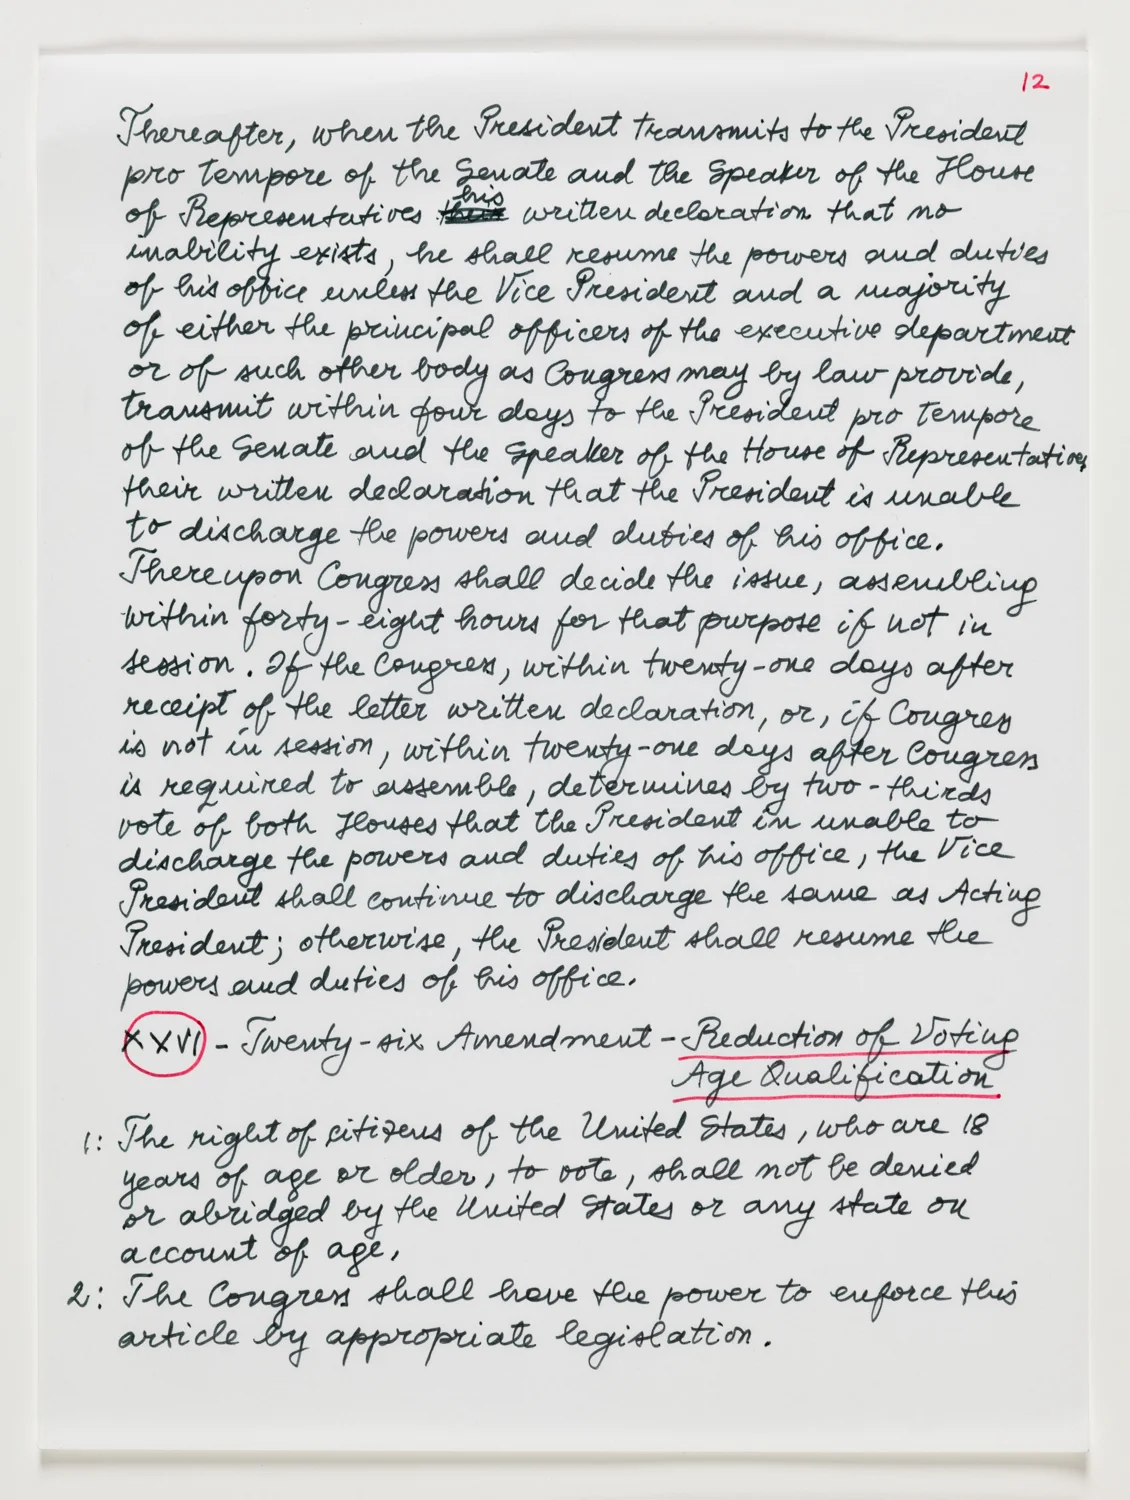 12
Thereafter, when the President transmits to the President
pro tempore of the Senate and the Speaker of the House
of Representatives his written declaration that no
inability exists, he shall resume the powers and duties
of his office unless the Vice President and a majority
of either the principal officers of the executive department
or of such other body as Congress may by law provide,
transmit within four days to the President pro tempore
of the Senate and the Speaker of the House of Representatives
their written declaration that the President is unable
to discharge the powers and duties of his office.
Thereupon Congress shall decide the issue, assembling
within forty-eight hours for that purpose if not in
session. If the Congress, within twenty-one days after
receipt of the letter written declaration, or, if Congress
is not in session, within twenty-one days after Congress
is required to assemble, determines by two-thirds
vote of both Houses that the President in unable to
discharge the powers and duties of his office, the Vice
President shall continue to discharge the same as Acting
President; otherwise, the President shall resume the
powers and duties of his office.
XXVI - Twenty-six Amendment - Reduction of Voting
Age Qualification
1: The right of citizens of the United States, who are 18
years of age or older, to vote, shall not be denied
or abridged by the United States or any state on
account of age.
2: The Congress shall have the power to enforce this
article by appropriate legislation.